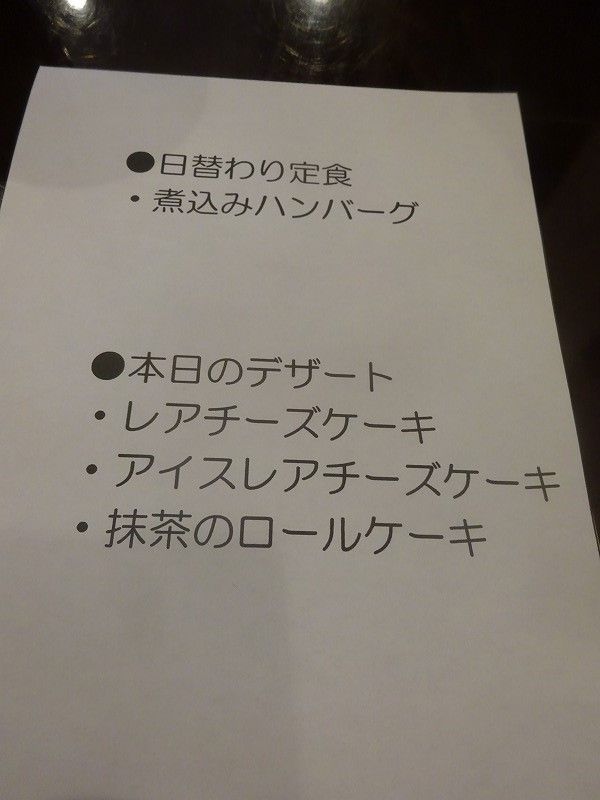 ●日替わり定食
・煮込みハンバーグ
●本日のデザート
・レアチーズケーキ
・アイスレアチーズケーキ
・抹茶のロールケーキ